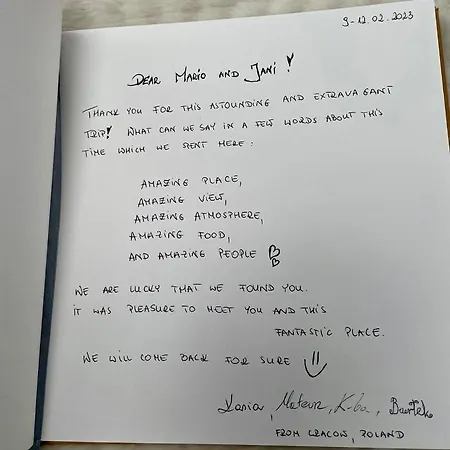 9-12.02.2023
DEAR MARIO AND JANI!
THANK YOU FOR THIS ASTOUNDING AND EXTRAVAGANT
TRIP! WHAT CAN WE SAY IN A FEW WORDS ABOUT THIS
TIME WHICH WE SPENT HERE:
AMAZING PLACE,
AMAZING VIEW,
AMAZING ATMOSPHERE,
AMAZING FOOD,
AND AMAZING PEOPLE
WE ARE LUCKY THAT WE FOUND YOU.
IT WAS PLEASURE TO MEET YOU AND THIS
FANTASTIC PLACE.
WE WILL COME BACK FOR SURE
Kania, Mateusz, Kuba, Bartek
FROM CRACOW, POLAND